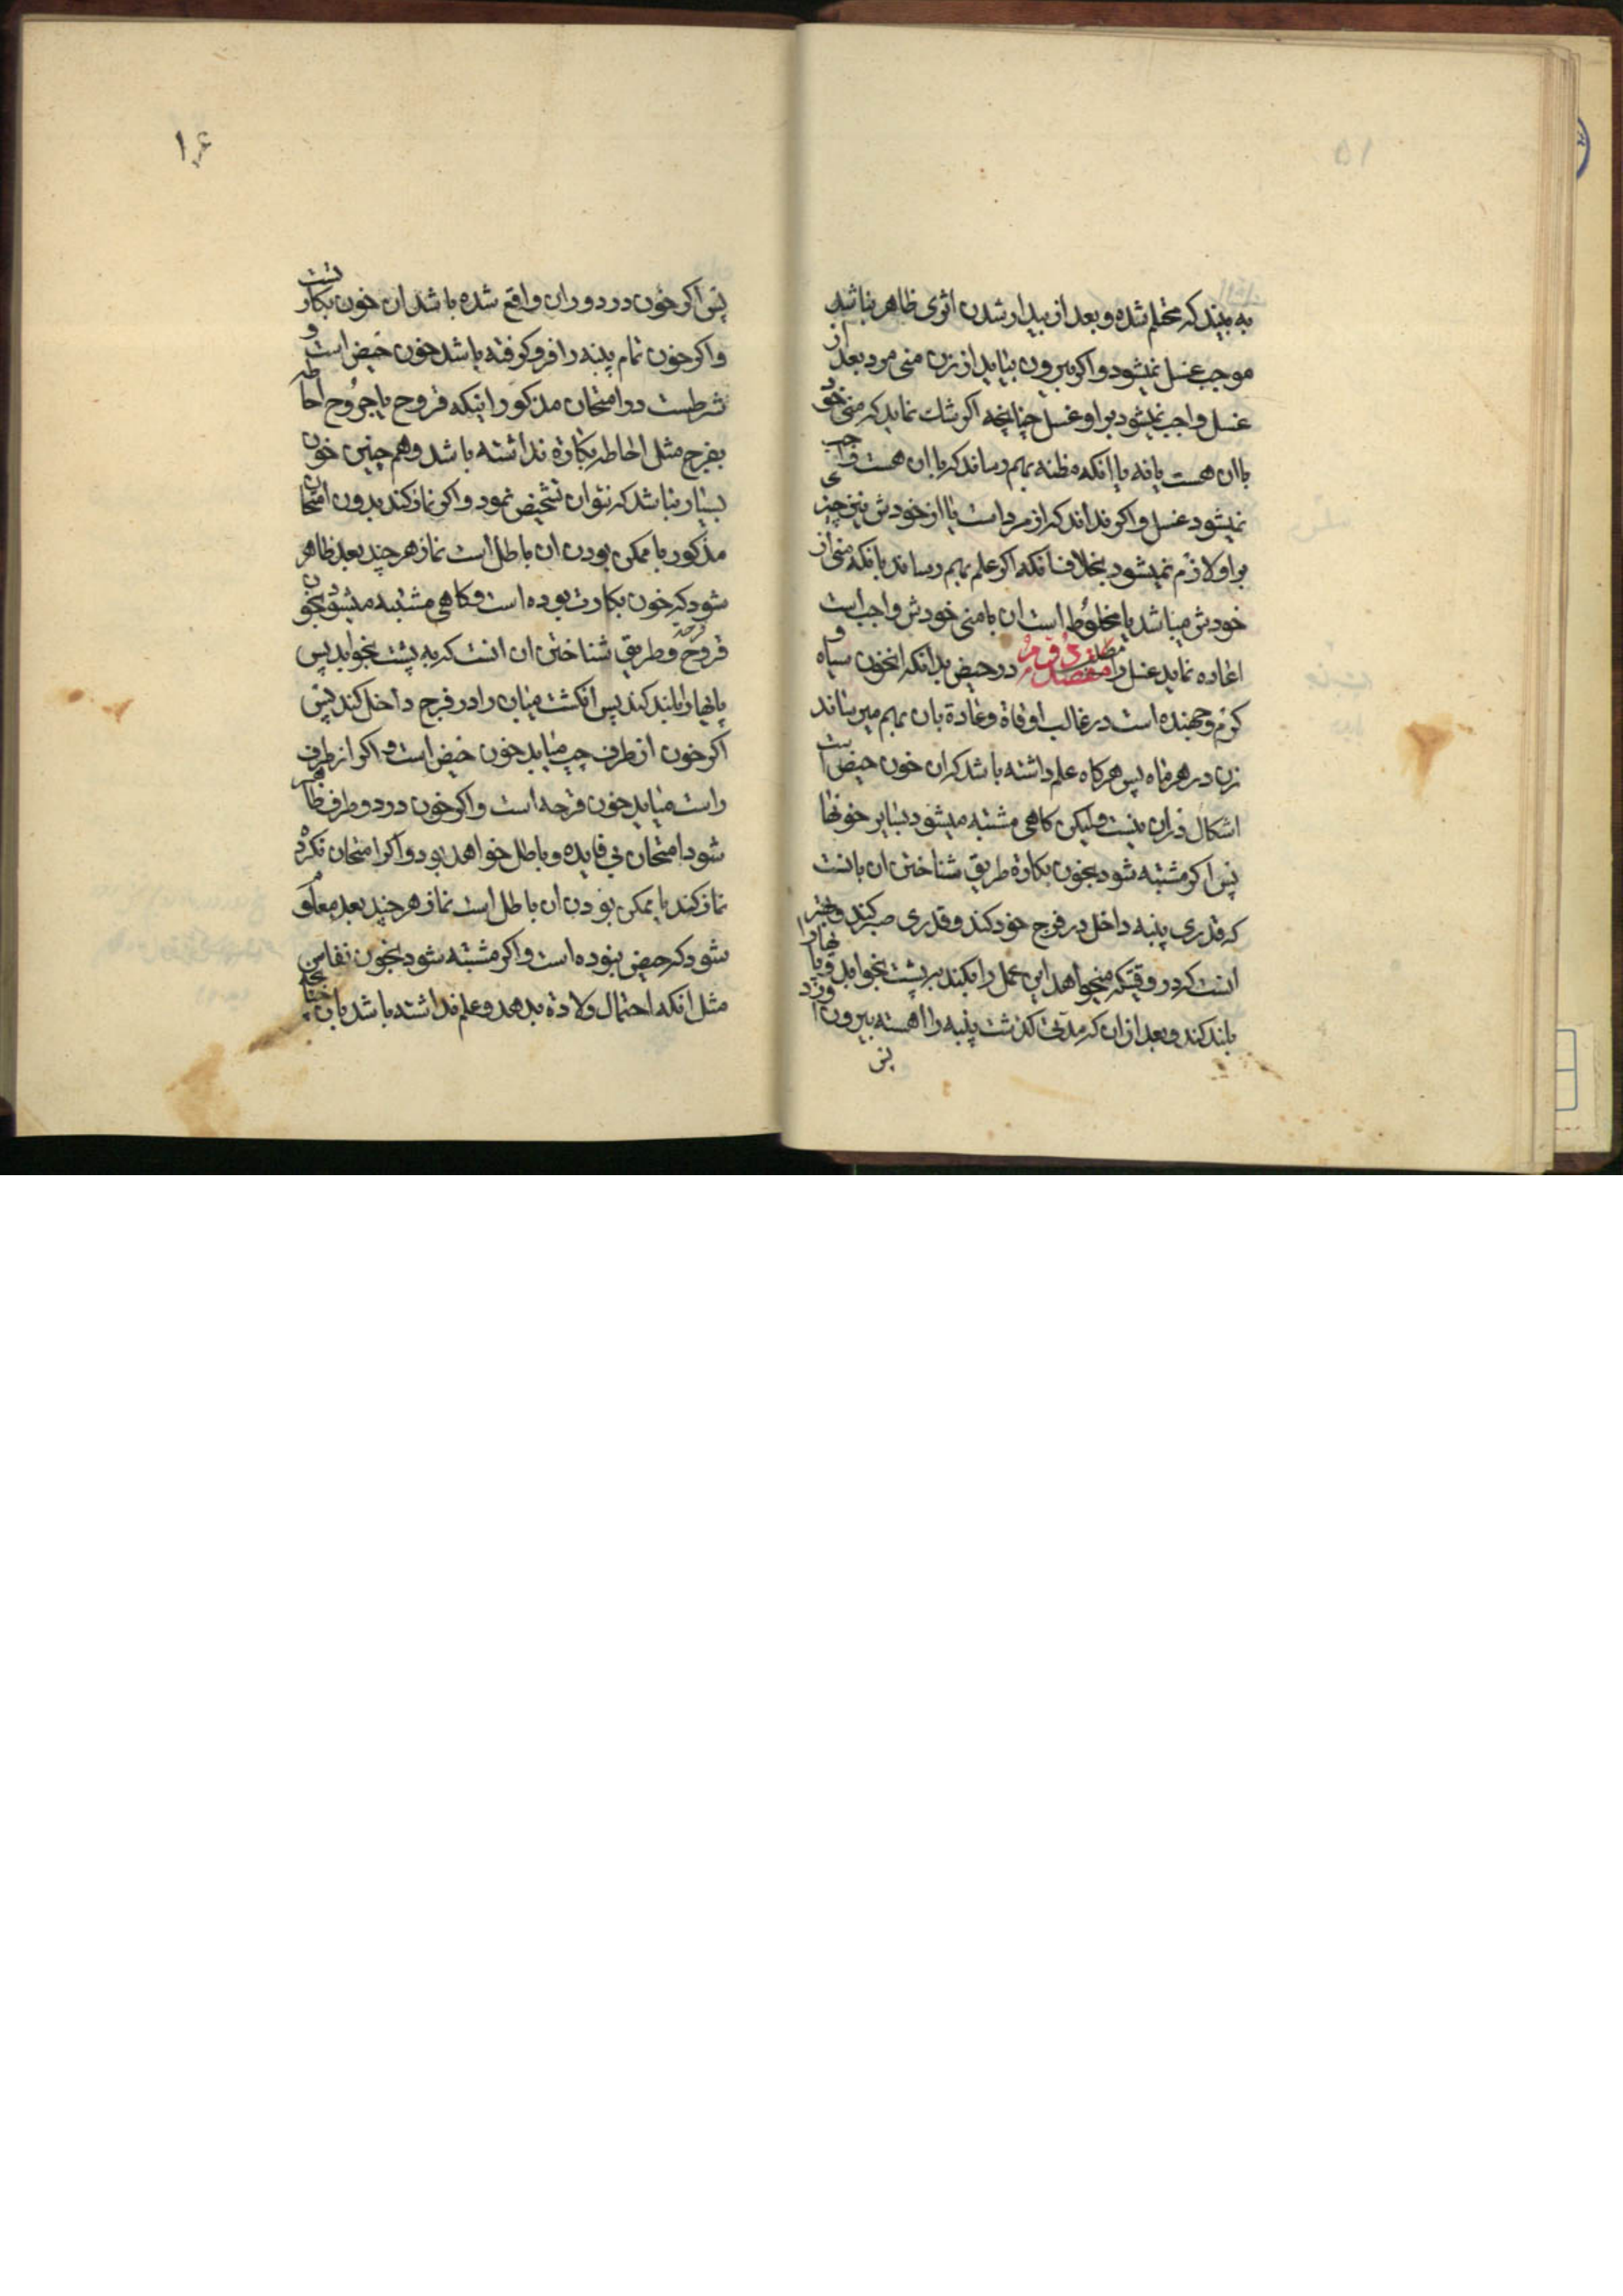 به بیند که محتلم شده و بعد از بیدار شدن اثری ظاهر نباشد
موجب غسل نمیشود و اکر بیرون بیاید از زن منی مرد بعد از
غسل واجب نمیشود بر او غسل چنانچه اکر شک نماید که منی خود
با ان هست یا نه یا انکه مظنه بهم رساند که با ان هست واجب
نمیشود غسل و اکر نداند که از مرد است یا از خودش نیز چیزی
بر او لازم نمیشود بخلاف انکه اکر علم بهم رساند بانکه منی از
خودش میباشد یا مخلوط است ان با منی خودش واجب است
اعاده نماید غسل را در حیض بدانکه انخون سیاه و
کرم و جهنده است در غالب اوقاة و عادة بان بهم میرساند
زن در هر ماه پس هرکاه علم داشته باشد که ان خون حیض است
اشکال در ان نیست ولیکن کاهی مشتبه میشود بسایر خونها
پس اکر مشتبه شود بخون بکارة طریق شناختن ان بانست
که قدری پنبه داخل در فرج خود کند و قدری صبر کند و بهتر
انست که در وقتیکه میخواهد این عمل را بکند بر پشت بخوابد و پاها را
بلند کند و بعد از ان که مدتی کذشت پنبه را اهسته بیرون اورد
پس
۱۶
پس اکر خون در دور ان واقع شده باشد ان خون بکارتست
و اکر خون تمام پنبه را فرو کرفته باشد خون حیض است و
شرطست در امتحان مذکور اینکه قروح یا جروح احاطه
بفرج مثل احاطه بکارة نداشته باشد و هم چنین خون
بسیار نباشد که نتوان تشخیص نمود و اکر نماز کند بدون امتحان
مذکور با ممکن بودن ان باطل است نماز هر چند بعد ظاهر
شود که خون بکارت بوده است و کاهی مشتبه میشود بخون
قروح قرحه و طریق شناختن ان انست که به پشت بخوابد پس
پاها را بلند کند پس انکشت میان را در فرج داخل کند پس
اکر خون از طرف چپ میاید خون حیض است و اکر از طرف
راست میاید خون قرحه است و اکر خون در دو طرف ظاهر
شود امتحان بی فایده و باطل خواهد بود و اکر امتحان نکرده
نماز کند با ممکن بودن ان باطل است نماز هر چند بعد معلوم
شود که حیض نبوده است و اکر مشتبه شود بخون نفاس
مثل انکه احتمال ولادة بدهد و علم نداشته باشد بان چنانچه